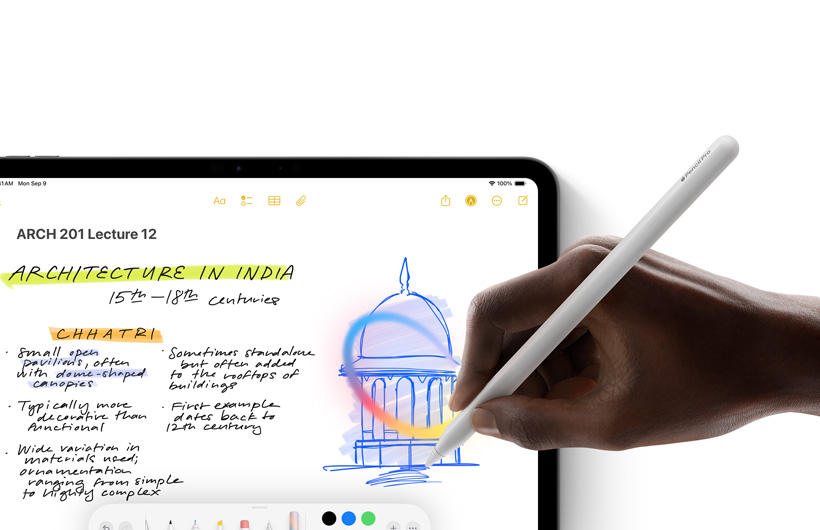 41AM Mon Sep 9
100%
Aa
ARCH 201 Lecture 12
ARCHITECTURE IN INDIA
15th – 18th centuries
CHHATRI
· Small open
pavilions, often
with dome-shaped
canopies
· Typically more
decorative than
functional
· Wide variation in
materials used;
ornamentation
ranging from simple
to highly complex
· Sometimes standalone
but often added
to the rooftops of
buildings
· First example
dates back to
12th century
Pencil Pro